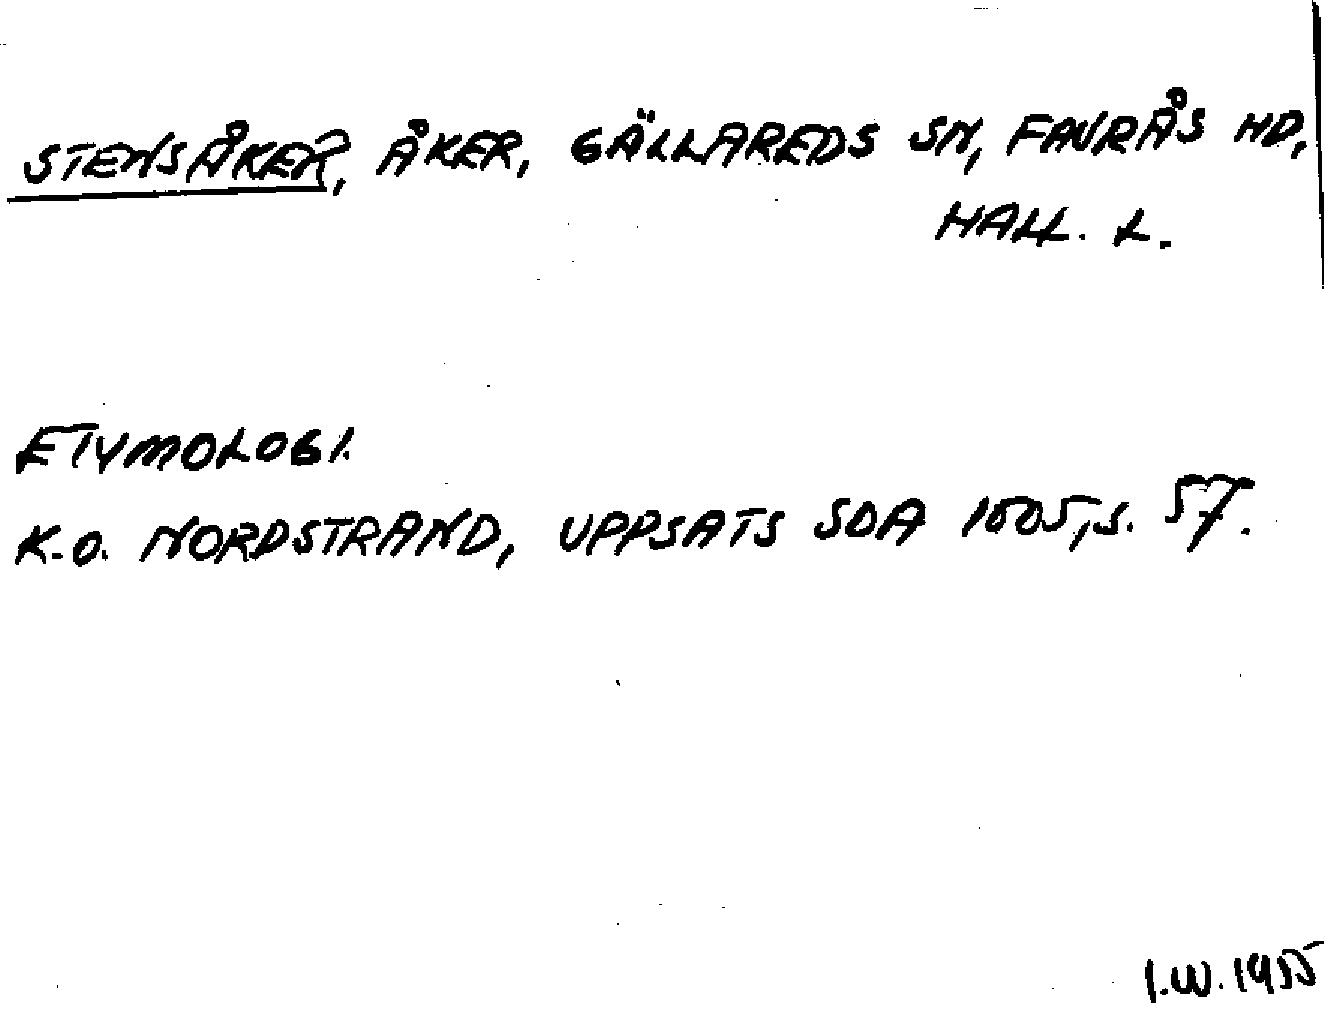 STENSÅKER, ÅKER, GÄLLAREDS SN, FAURÅS HD,
HALL. L.
ETYMOLOGI.
K.O. NORDSTRAND, UPPSATS SOA 1005, S. 57.
I.W. 1955